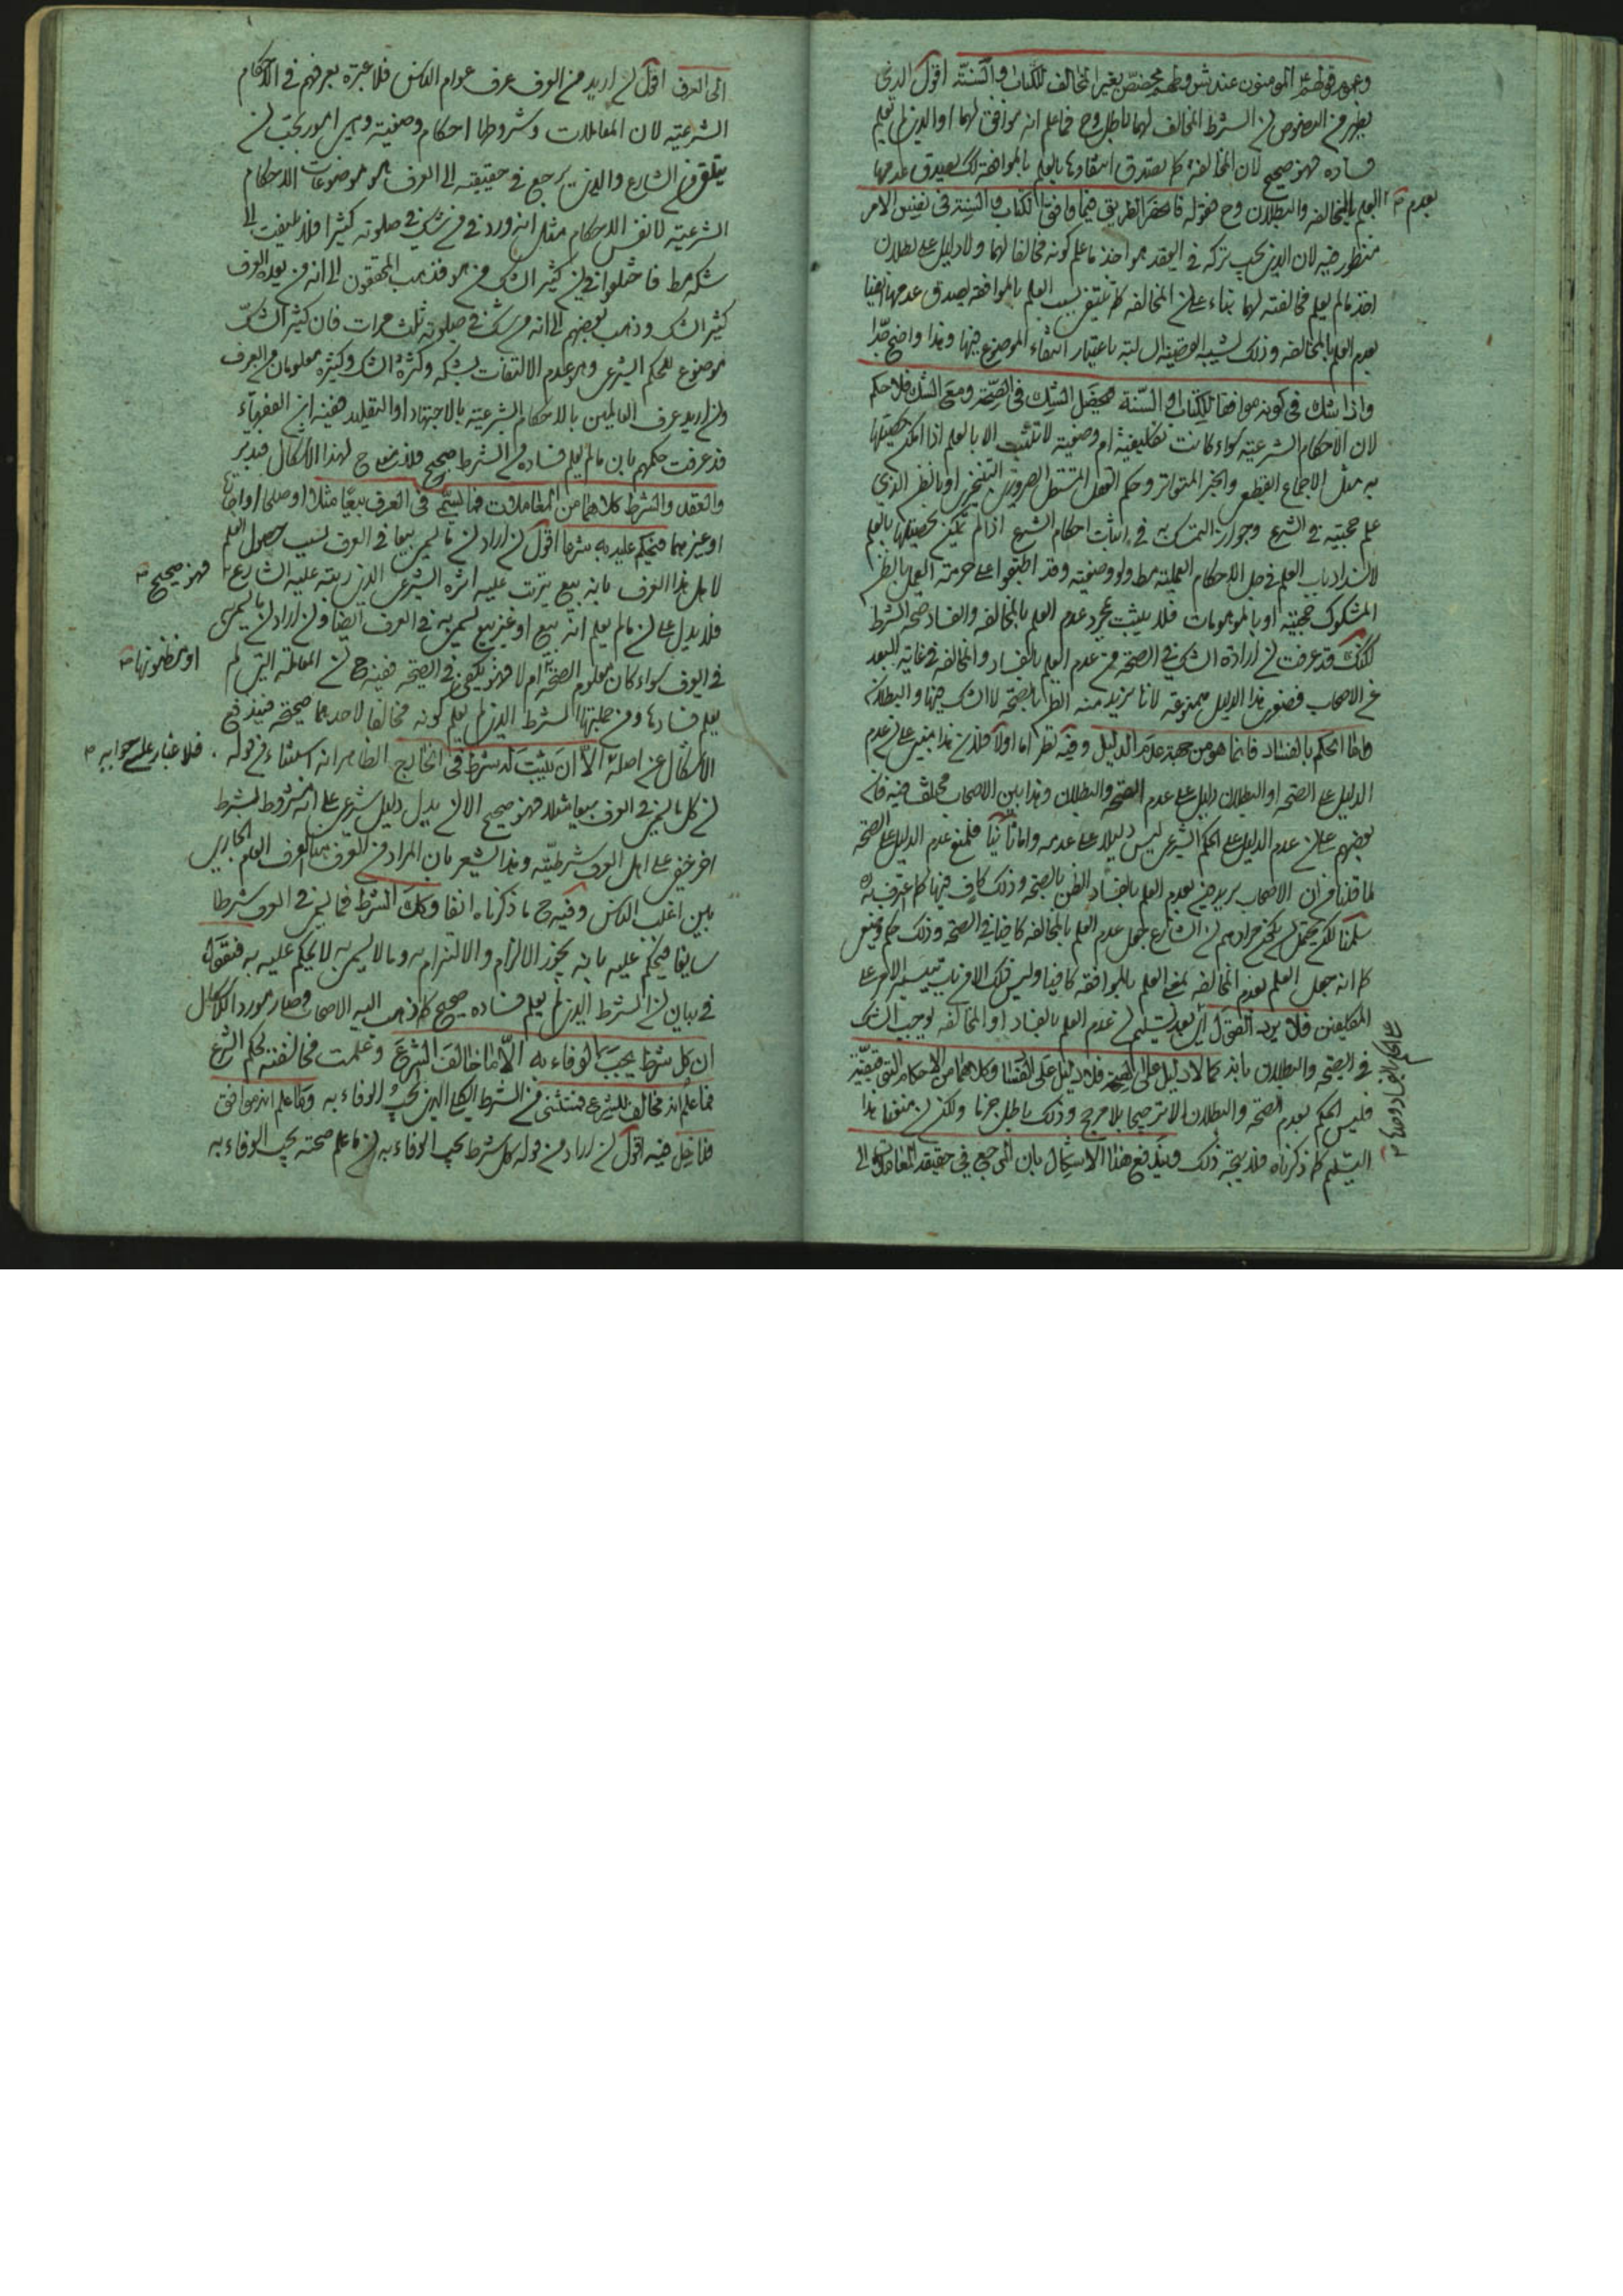 وعموم قولهم المؤمنون عند شروطهم مختص بغير المخالف للكتاب والسنة اقول الذي
يظهر من النصوص ان الشرط المخالف لهما باطل وح فما علم انه موافق لهما او الذي لم يعلم
فساده فهو صحيح لان المخالفة كما يصدق انتفاؤها بالعلم بالموافقة كك يصدق عدمها
بعدم العلم بالمخالفة والبطلان وح فقوله فانحصر الطريق فيما وافق الكتاب والسنة في نفس الامر
منظور فيه لان الذي يجب تركه في العقد هو اخذ ما علم كونه مخالفا لهما ولا دليل على بطلان
اخذ ما لم يعلم مخالفته لهما بناء على ان المخالفة كما ينتفي بسبب العلم بالموافقة يصدق عدمها ايضا
بعدم العلم بالمخالفة وذلك لشبه القضية السالبة باعتبار انتفاء الموضوع فيها وهذا واضح جدا
واذا شك في كونه موافقا للكتاب او السنة فيحصل الشك في الصحة ومع الشك فلا حكم
لان الاحكام الشرعية سواء كانت تكليفية ام وضعية لا تثبت الا بالعلم اذا امكن تحصيلها
به مثل الاجماع القطعي والخبر المتواتر وحكم العقل المستقل الضروري التنجيزي او بالظن الذي
علم حجيته في الشرع وجواز التمسك به في اثبات احكام الشرع اذا لم يمكن تحصيلها بالعلم
لانسداد باب العلم في جل الاحكام العملية مط ولو وضعية وقد اطبقوا على حرمة العمل بالظن
المشكوك حجيته او بالموهومات فلا يثبت بمجرد عدم العلم بالمخالفة والفساد صحة الشرط
لكنك قد عرفت ان ارادة الشك في الصحة من عدم العلم بالفساد والمخالفة في غاية البعد
عن الاصحاب فصغرى هذا الدليل ممنوعة لانا نريد منه الظن بالصحة لا الشك فيها والبطلان
واما الحكم بالفساد فانما هو من جهة عدم الدليل وفيه نظر اما اولا فلان هذا مبني على ان عدم
الدليل على الصحة او البطلان دليل على عدم الصحة والبطلان وهذا بين الاصحاب مختلف فيه فان
بعضهم على ان عدم الدليل على الحكم الشرعي ليس دليلا على عدمه واما ثانيا فلمنع عدم الدليل على الصحة
لما قلنا من ان الاصحاب يريدون بعدم العلم بالفساد الظن بالصحة وذلك كاف فيها كما اعترف به
سلمنا لكن يحتمل ان يكون مرادهم ان الشارع جعل عدم العلم بالمخالفة كافيا في الصحة وذلك حكم وضعي
كما انه جعل العلم بعدم المخالفة بمعنى العلم بالموافقة كافيا وليس ذلك الا من باب تيسير الامر على
المكلفين فلا يرد القول اي بعد تسليم ان عدم العلم بالفساد او المخالفة يوجب الشك
في الصحة والبطلان بانه كما لا دليل على الصحة فلا دليل على الفساد وكلاهما من الاحكام التوقيفية
فليس الحكم بعدم الصحة والبطلان الا ترجيحا بلا مرجح وذلك باطل جزما ولكن ان منعنا هذا
التسليم كما ذكرناه فلا يتجه ذلك ويندفع هذا الاشكال بان المرجع في حقيقة المعاملات الى
الى العرف اقول ان اريد من العرف عرف عوام الناس فلا عبرة بعرفهم في الاحكام
الشرعية لان المعاملات وشروطها احكام وضعية وهي امور يجب ان
يتلقى من الشارع والذي يرجع في حقيقته الى العرف هو موضوعات الاحكام
الشرعية لا نفس الاحكام مثل انه ورد في من شك في صلوته كثيرا فلا يلتفت الى
شكه مط فاختلفوا في ان كثير الشك من هو فذهب المحققون الى انه من يعده العرف
كثير الشك وذهب بعضهم الى انه من شك في صلوته ثلث مرات فان كثير الشك
موضوع للحكم الشرعي وهو عدم الالتفات بشكه وكثرة الشك وكثيره معلومان من العرف
وان اريد عرف العالمين بالاحكام الشرعية بالاجتهاد او التقليد ففيه ان الفقهاء
قد عرفت حكمهم بان ما لم يعلم فساده من الشرط صحيح فلا دفع ح لهذا الاشكال فتدبر
والعقد والشرط كلاهما من المعاملات فما يسمى في العرف بيعا مثلا او صلحا او اجارة
او غيرهما فيحكم عليه به شرعا اقول ان اراد ان ما يسمى بيعا في العرف بسبب حصول العلم
لاهل هذا العرف بانه بيع يترتب عليه اثره الشرعي الذي رتبه عليه الشارع فهو صحيح
فلا يدل على ان ما لم يعلم انه بيع او غير بيع يسمى به في العرف ايضا وان اراد ان ما يسمى
في العرف سواء كان معلوم الصحة او مظنونها ام لا فهو يكفي في الصحة ففيه ح ان المعاملة التي لم
يعلم فسادها ومن جملتها الشرط الذي لم يعلم كونه مخالفا لاحدهما صحيحة فيندفع
الاشكال عن اصله الا ان يثبت له شرط في الخارج الظاهر انه استثناء من قوله فلا غبار على جوابه
ان كل ما يسمى في العرف بيعا مثلا فهو صحيح الا ان يدل دليل شرعي على انه مشروط بشرط
اخر خفي على اهل العرف شرطيته وهذا يشعر بان المراد من العرف هنا العرف العام الجاري
بين اغلب الناس وفيه ح ما ذكرناه انفا وكذلك الشرط فما يسمى في العرف شرطا
سايغا فيحكم عليه بانه يجوز الالزام والالتزام به وما لا يسمى به لا يحكم عليه به فنقول
في بيان ان الشرط الذي لم يعلم فساده صحيح كما ذهب اليه الاصحاب وصار مورد الاشكال
ان كل شرط يجب الوفاء به الا ما خالف الشرع وعلمت مخالفته لحكم الشرع
فما علم انه مخالف للشرع فمستثنى من الشرط الكلي الذي يجب الوفاء به وما علم انه موافق
فداخل فيه اقول ان اراد من قوله كل شرط يجب الوفاء به ان ما علم صحته يجب الوفاء به